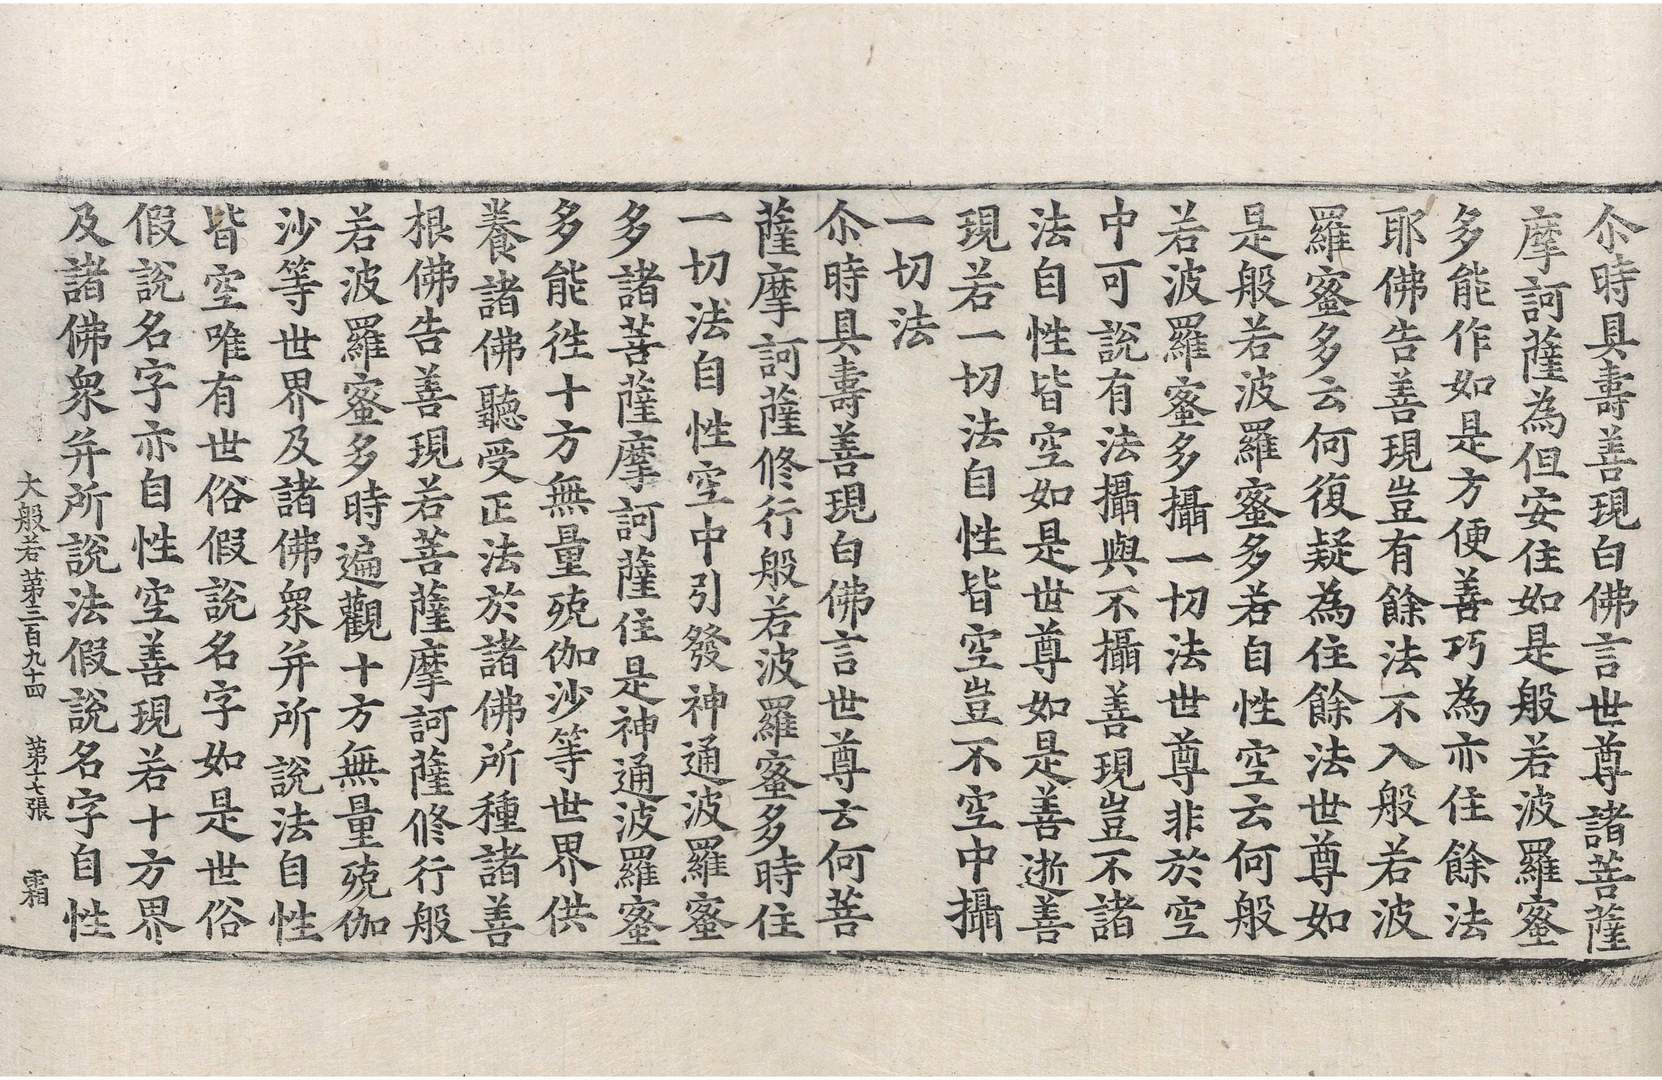 尒時具壽善現白佛言世尊諸菩薩
摩訶薩為但安住如是般若波羅蜜
多能作如是方便善巧為亦住餘法
耶佛告善現豈有餘法不入般若波
羅蜜多云何復疑為住餘法世尊如
是般若波羅蜜多若自性空云何般
若波羅蜜多攝一切法世尊非於空
中可說有法攝與不攝善現豈不諸
法自性皆空如是世尊如是善逝善
現若一切法自性皆空豈不空中攝
一切法
尒時具壽善現白佛言世尊云何菩
薩摩訶薩修行般若波羅蜜多時住
一切法自性空中引發神通波羅蜜
多諸菩薩摩訶薩住是神通波羅蜜
多能徃十方無量殑伽沙等世界供
養諸佛聽受正法於諸佛所種諸善
根佛告善現若菩薩摩訶薩修行般
若波羅蜜多時遍觀十方無量殑伽
沙等世界及諸佛衆并所說法自性
皆空唯有世俗假說名字如是世俗
假說名字亦自性空善現若十方界
及諸佛衆并所說法假說名字自性
大般若第三百九十四 第十七張 霜